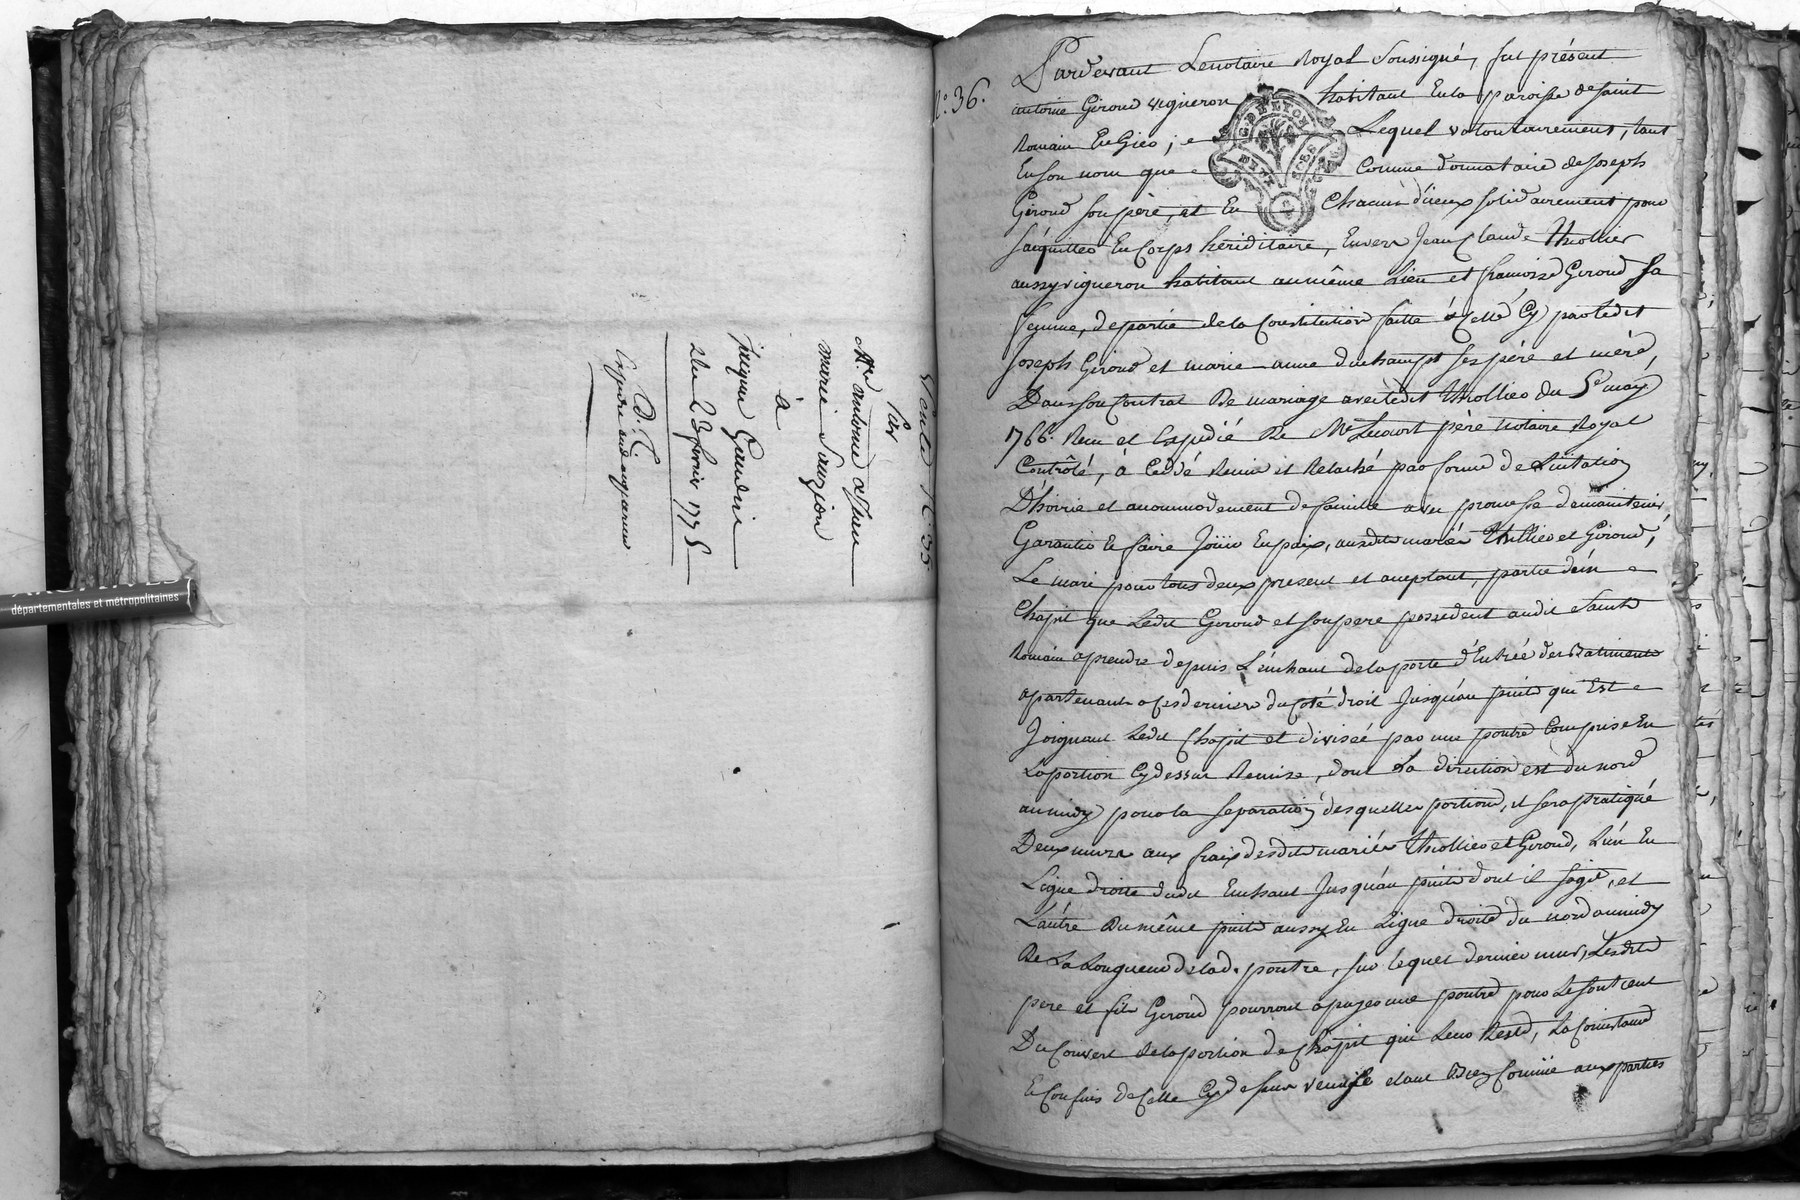 Vente N.° 35
Par
Mre antoine
marie Souzion
à
jacque Gaudin
du 23 fevrier 1775
ARCHIVES
départementales et métropolitaines
N.° 36.
Pardevant Lenotaire Royal Soussigné, fut présent
antoine Giroud vigneron habitant Enla paroisse desaint
Romain EnGier; Lequel volontairement, tant
Enson nom que Comme donnataire deJoseph
Giroud sonpère, et En Chacun d'iceux solidairement pour
saquitter EnCorps héréditaire, Envers Jean Claude Thiollier
aussy vigneron habitant aumême Lieu et françoise Giroud sa
femme, departie dela Constitution faitte àCelle Cy parledit
Joseph Giroud et marie anne duchampt ses père et mère,
Dansson Contrat De mariage avecledit Thiollier du 5e may
1766. Reçu et Expedié De Me père notaire Royal
Contrôlé, à Cedé Remis et Relaché par forme de Licitation
D'hoirie et accommodement defamille avec promesse demaintenir,
Garantir Et faire Jouir Enpaix, auxdits mariés Thiollier et Giroud,
Le mari pour tous deux présent et aceptant, partie d'un
Chapit que Ledit Giroud et sonpere possedent audit Saint
Romain aprendre depuis L'enchant delaporte d'Entrée des Batiments
apartenants aCesderniers ducoté droit Jusqu'au puits qui Est
Joignant Ledit Chapit et divisée par une poutre Comprise En
Laportion Cydessus Remise, dont La direction est du nord
aumidy pour la separation desquelles portions, il sera pratiqué
Deux murs aux frais desdits mariés Thiollier et Giroud, L'un En
Ligne droite dudit Enchant Jusqu'au puits dont il sagit, et
L'autre Dumême puits aussy En Ligne droite du nord aumidy
De La Longueur delad. poutre, sur lequel dernier mur, Lesdits
pere et fils Giroud pourront apuyer une poutre pour Le soutient
Du Couvert delaportion de Chapit qui Leur Reste, La Contenance
Et Confins deCelle Cydessus étant Connüe aux parties